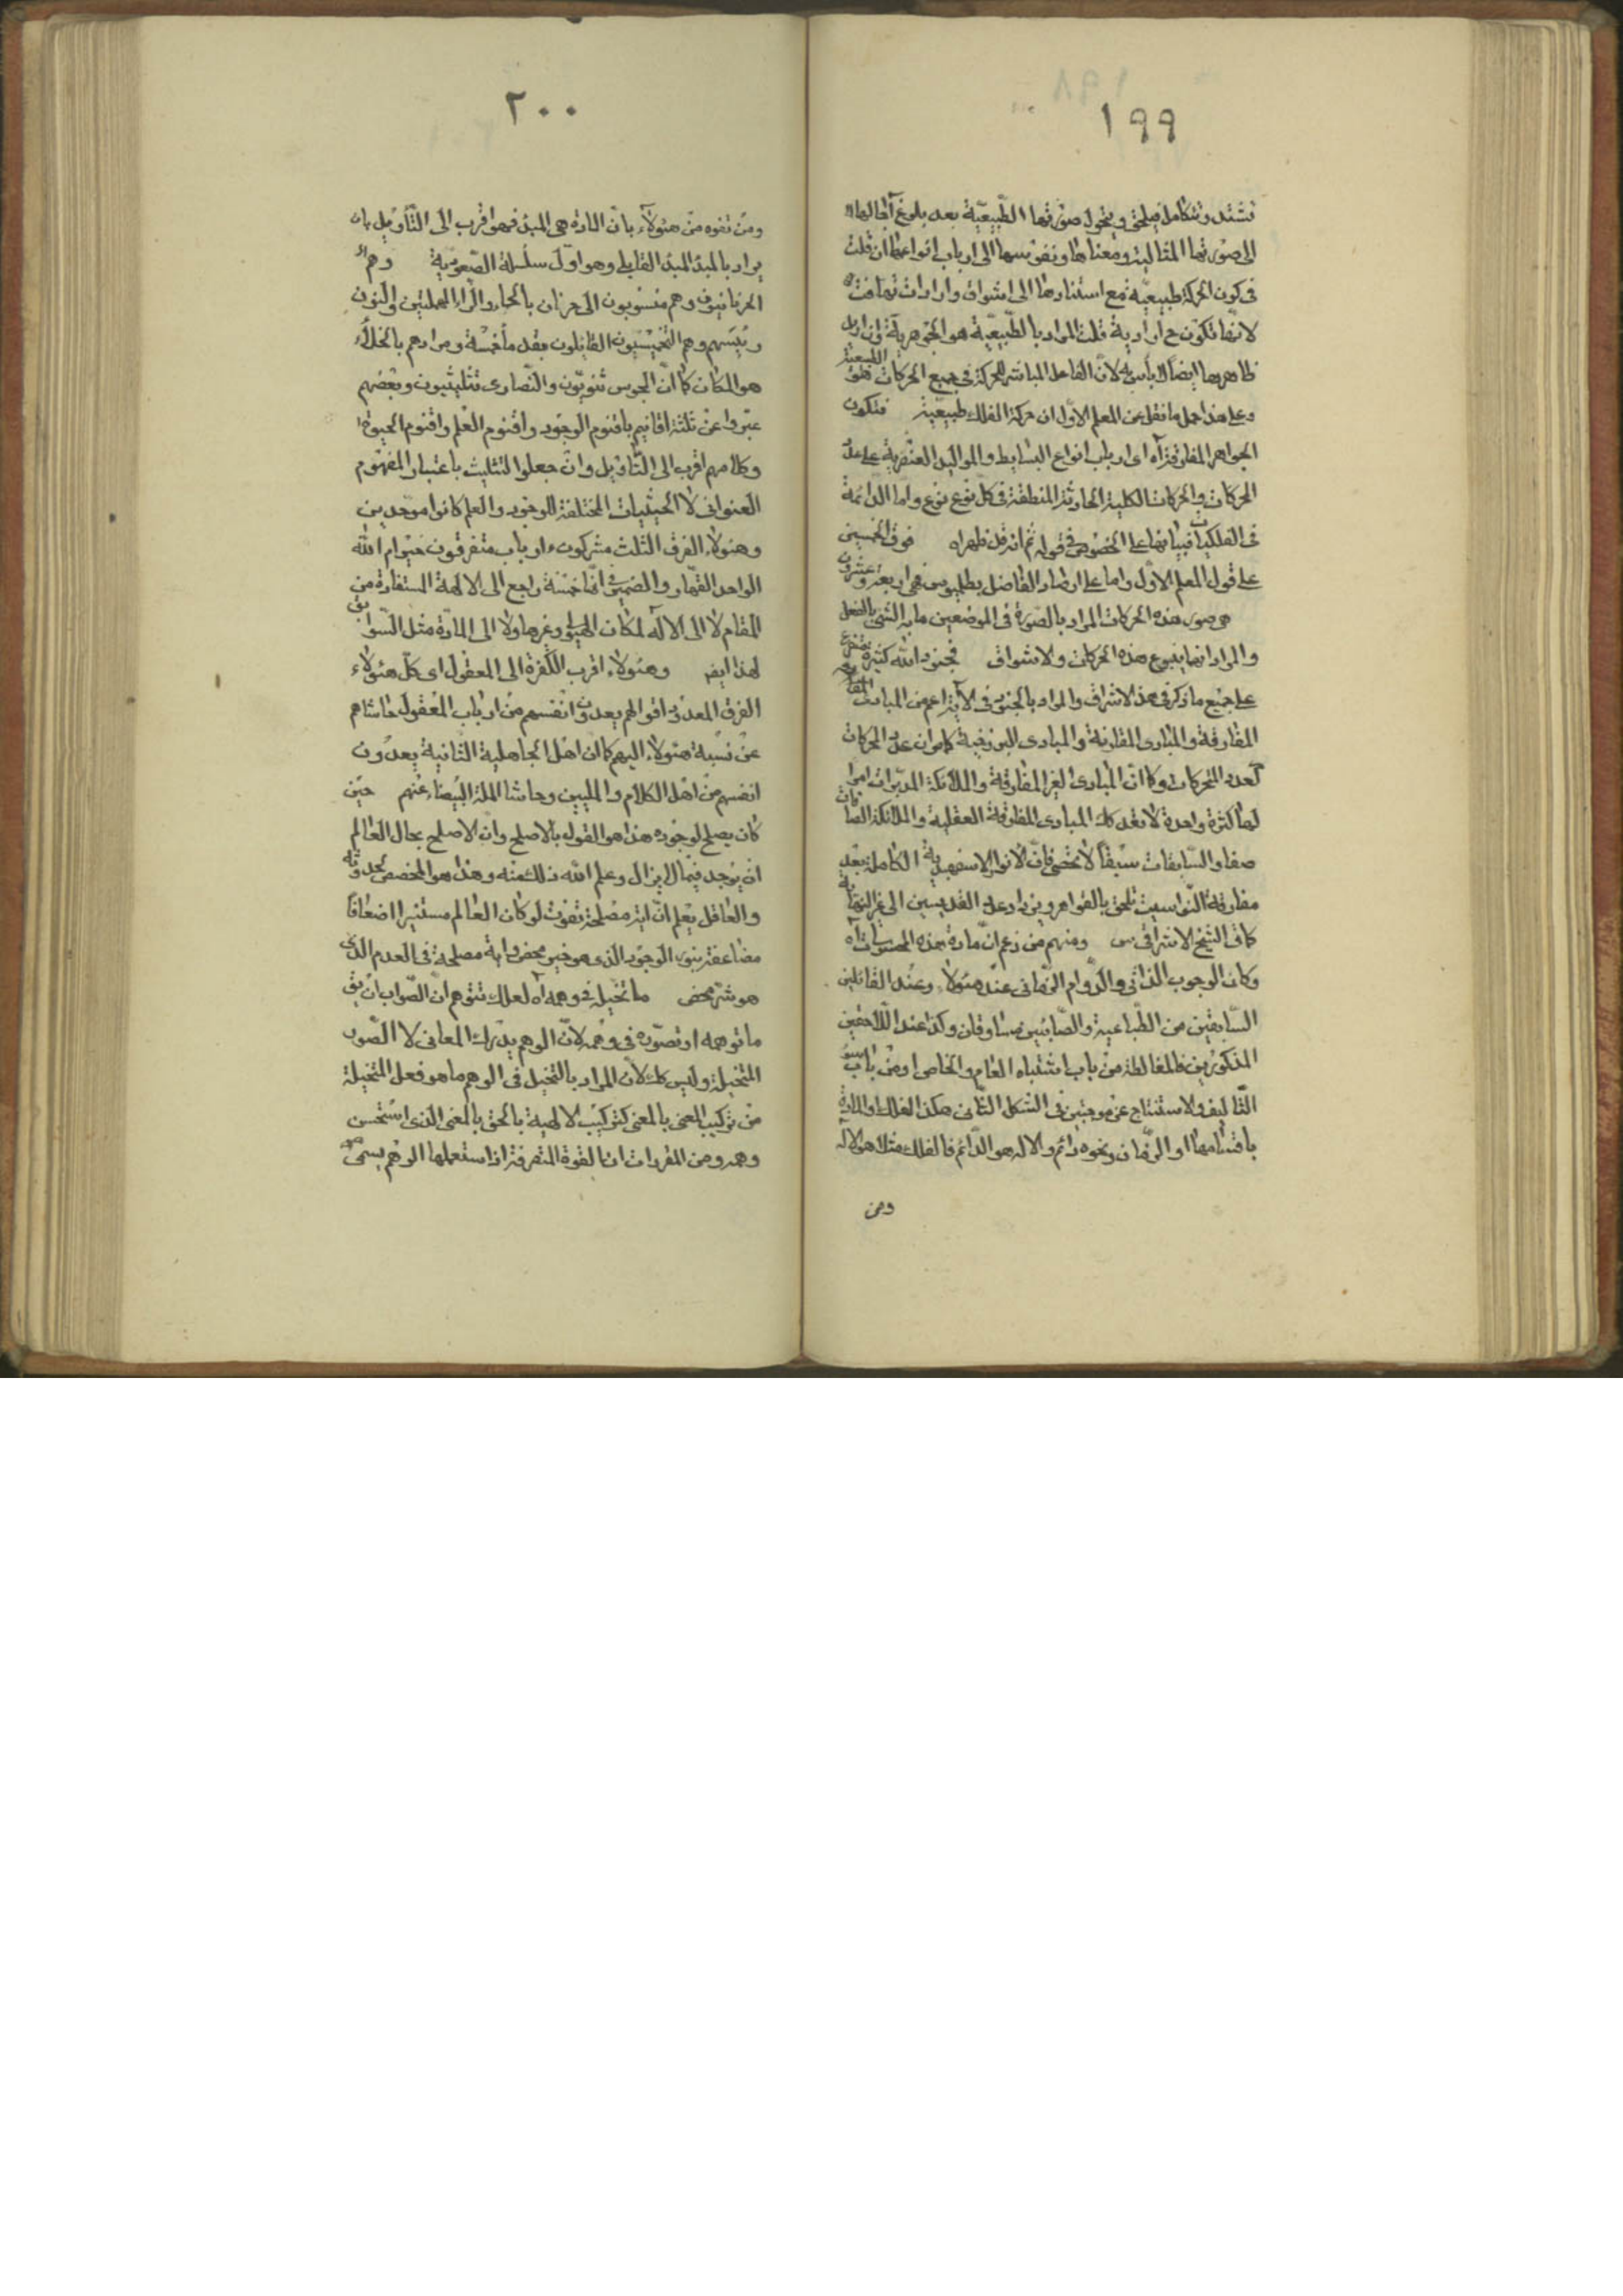 ١٩٩
تشتد وتتكامل فيلحق ويتحول صورتها الطبيعية بعد بلوغ آجالها
الى صورتها المثالية ومعناها ونفوسها الى ارباب انواعها ان قلت
فى كون الحركة طبيعية مع استنادها الى اشواق وارادات تهافت
لانها تكون ح ارادية قلت المراد بالطبيعية هو الجوهرية وان اريد
ظاهرها ايضا لا باس به لان الفاعل المباشر للحركة فى جميع الحركات هو الطبيعة
وعلى هذا حمل ما نقل عن المعلم الاول ان حركة الفلك طبيعية فتكون
الجواهر المفارقة آه اى ارباب انواع البسايط والمواليد العنصرية على عدد
الحركات والحركات الكلية الحادثة المنطقة فى كل نوع نوع واما الدائمة
فى الفلكيات فبيانها على الخصوص فى قوله ثم انه قد ظهر اه فوق الخمسين
على قول المعلم الاول واما على ارصاد الفاضل بطلميوس فهى اربعة وعشرون
هى صور هذه الحركات المراد بالصورة فى الموضعين ما به الشئ بالفعل
والمراد انها ينبوع هذه الحركات والاشواق فجنود الله كثيرة متفرع
على جميع ما ذكر فى هذا الاشراق والمراد بالجنود فى الآية اعم من المبادى
المفارقة والمبادى المقارنة والمبادى البرزخية كما ان عدد الحركات
كعدد المتحركات وكما ان المبادى الغير المفارقة والملائكة المدبرات امرا
لها كثرة واحدة لا تعد كك المبادى المفارقة العقلية والملائكة الصافات
صفا والسابقات سبقا لا تحصى فان الانوار الاسفهبدية الكاملة بعد
مفارقة النواسيت تلحق بالقواهر ويزداد عدد القديسين الى غير النهاية
كما قال الشيخ الاشراقى س ومنهم من زعم ان مادة هذه المحسوسات آه
وكان الوجوب الذاتى والدوام الزمانى عند هؤلاء وعند القائلين
السابقين من الطباعية والصابئين متساوقان وكذا عند اللاحقين
المذكورين فالمغالطة من باب اشتباه العام والخاص او من باب سوء
التاليف والاستنتاج عن موجبتين فى الشكل الثانى هكذا الفلك او المادة
باقسامها او الزمان ونحوه دائم والاله هو الدائم فالفلك مثلا هو الاله
ومن
٢٠٠
ومن تفوه من هؤلاء بان المادة هى المبدء فهو اقرب الى التأويل بان
يراد بالمبدء المبدء القابلى وهو اول سلسلة الصعودية وهم
الحرنانيون وهم منسوبون الى حرنان بالحاء والراء المهملتين والنون
رئيسهم وهم التخميسيون القائلون بقدماء خمسة ومرادهم بالخلاء
هو المكان كما ان المجوس ثنويون والنصارى تثليثيون وبعضهم
عبروا عن ثلثة اقانيم باقنوم الوجود واقنوم العلم واقنوم الحيوة
وكلامهم اقرب الى التاويل وان جعلوا التثليث باعتبار المفهوم
العنوانى لا الحيثيات المختلفة للوجود والعلم كانوا موحدين
وهؤلاء الفرق الثلث مشركون ءارباب متفرقون خير ام الله
الواحد القهار والضمير فى انها خمسة راجع الى الالهة المستفادة من
المقام لا الى الاله لمكان الهيولى وغيرها ولا الى المادة مثل السوابق
لهذا ايضا وهؤلاء اقرب الكفرة الى المعقول اى كل هؤلاء
الفرق المعدود اقوالهم يعدون انفسهم من ارباب المعقول حاشاهم
عن نسبة هؤلاء اليهم كما ان اهل الجاهلية الثانية يعدون
انفسهم من اهل الكلام والمليين وحاشا الملة البيضاء عنهم حين
كان يصلح لوجوده هذا هو القول بالاصلح وان الاصلح بحال العالم
ان يوجد فيما لا يزال وعلم الله ذلك منه وهذا هو المخصص لحدوثه
والعاقل يعلم ان اية مصلحة تفوت لو كان العالم مستنيرا اضعافا
مضاعفة بنور الوجود الذى هو خير محض واية مصلحة فى العدم الذى
هو شر محض ما تخيله فى وهمه آه لعلك تتوهم ان الصواب ان يق
ما توهمه او تصوره فى وهمه لان الوهم يدرك المعانى لا الصور
المتخيلة وليس كك لان المراد بالتخيل فى الوهم ما هو فعل المتخيلة
من تركيب المعنى بالمعنى كتركيب الالهية بالحق بالمعنى الذى استحسن
وهمه ومن المقررات ان القوة المتصرفة اذا استعملها الوهم يسمى